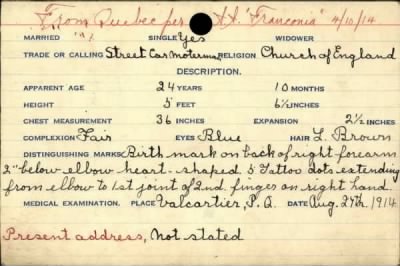 From Quebec per S.S. "Franconia" 4/10/14
MARRIED "%" SINGLE Yes WIDOWER
TRADE OR CALLING Street Car Motorman RELIGION Church of England
DESCRIPTION.
APPARENT AGE 24 YEARS 10 MONTHS
HEIGHT 5 FEET 6½ INCHES
CHEST MEASUREMENT 36 INCHES EXPANSION 2½ INCHES
COMPLEXION Fair EYES Blue HAIR L. Brown
DISTINGUISHING MARKS Birth mark on back of right forearm
2" below elbow heart-shaped 5 Tattoo dots extending
from elbow to 1st joint of 2nd. finger on right hand.
MEDICAL EXAMINATION. PLACE Valcartier, P.Q. DATE Aug. 27th. 1914
Present address, not stated